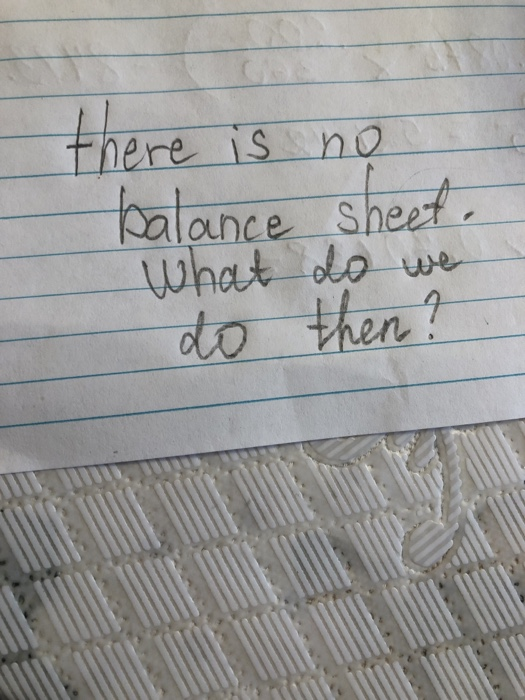 there is no
balance sheet.
What do we
do then?